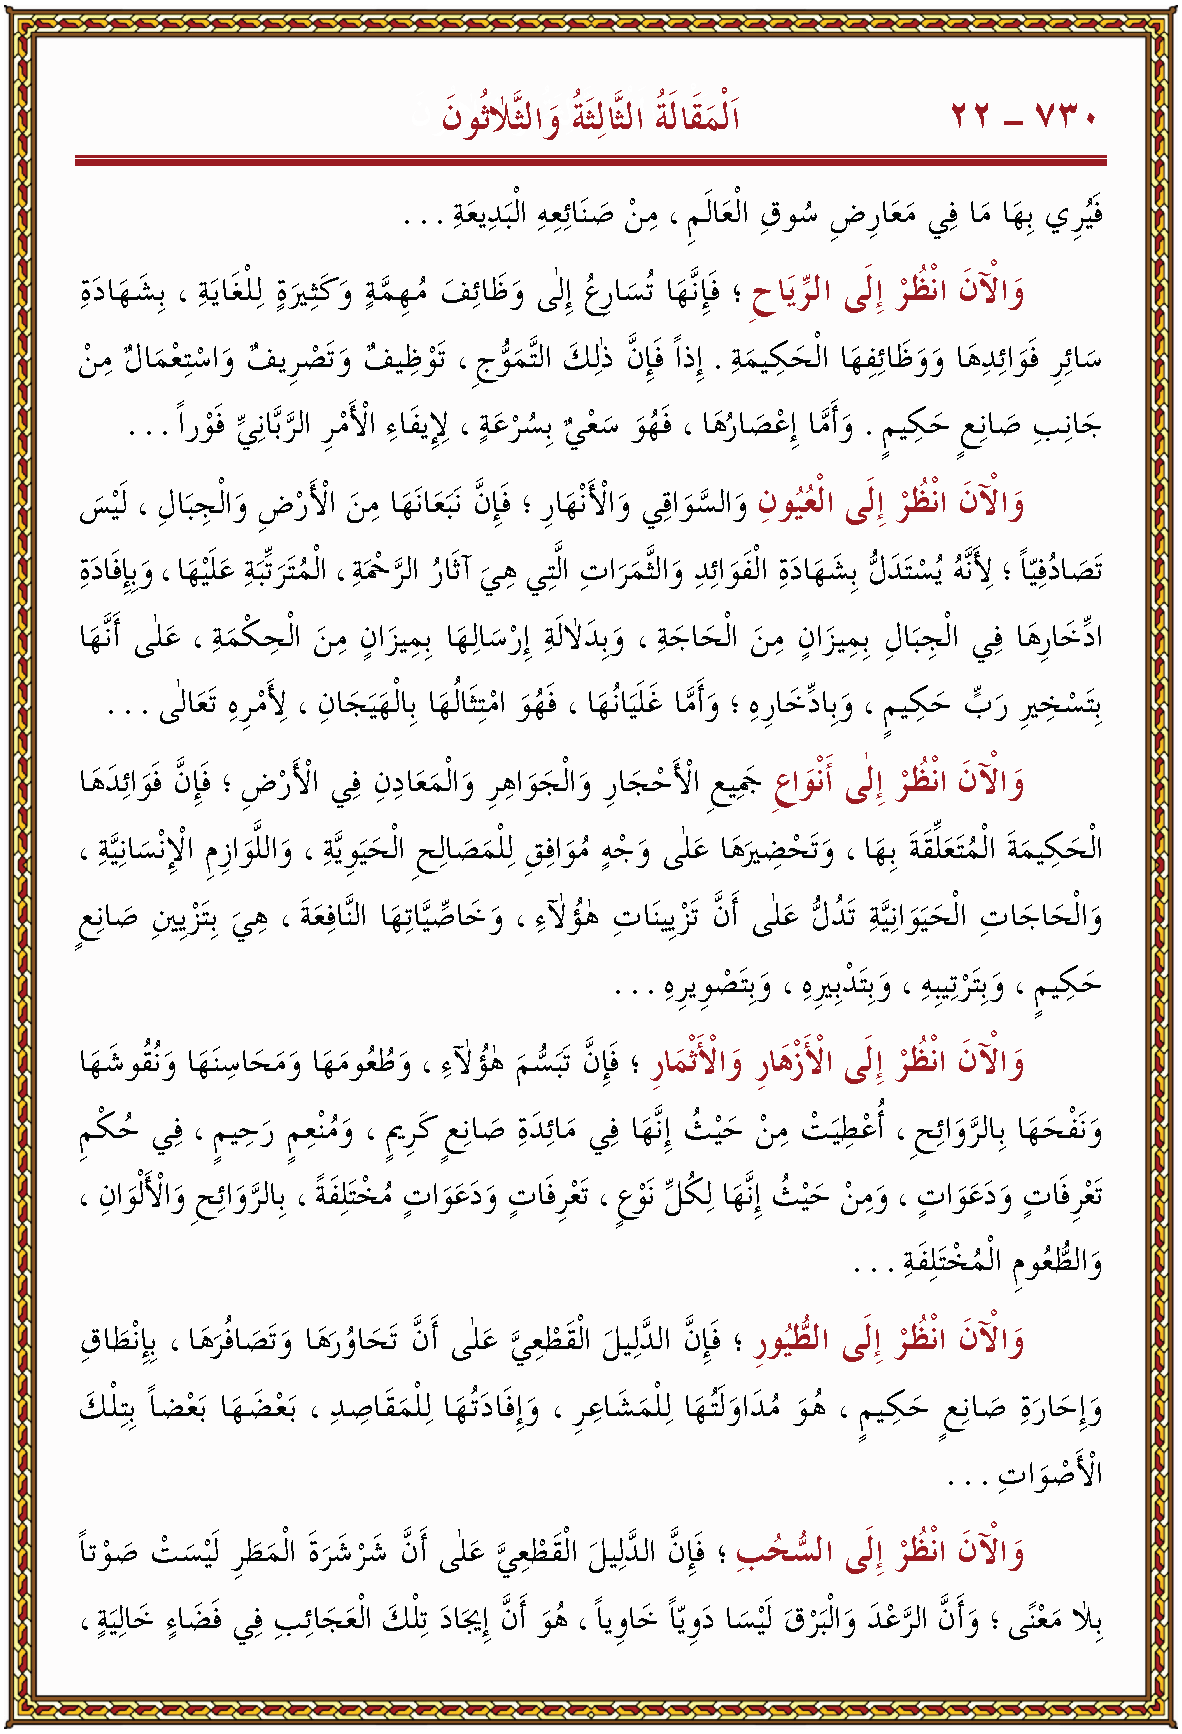 ٧٣٠ – ٢٢ اَلْمَقَالَةُ الثَّالِثَةُ وَالثَّلاٰثُونَ
فَيُرِي بِهَا مَا فِي مَعَارِضِ سُوقِ الْعَالَمِ ، مِنْ صَنَائِعِهِ الْبَدِيعَةِ . . .
وَالْآنَ انْظُرْ إِلَى الرِّيَاحِ ؛ فَإِنَّهَا تُسَارِعُ إِلٰى وَظَائِفَ مُهِمَّةٍ وَكَثِيرَةٍ لِلْغَايَةِ ، بِشَهَادَةِ
سَائِرِ فَوَائِدِهَا وَوَظَائِفِهَا الْحَكِيمَةِ . إِذاً فَإِنَّ ذٰلِكَ التَّمَوُّجَ ، تَوْظِيفٌ وَتَصْرِيفٌ وَاسْتِعْمَالٌ مِنْ
جَانِبِ صَانِعٍ حَكِيمٍ . وَأَمَّا إِعْصَارُهَا ، فَهُوَ سَعْيٌ بِسُرْعَةٍ ، لِإِيفَاءِ الْأَمْرِ الرَّبَّانِيِّ فَوْراً . . .
وَالْآنَ انْظُرْ إِلَى الْعُيُونِ وَالسَّوَاقِي وَالْأَنْهَارِ ؛ فَإِنَّ نَبَعَانَهَا مِنَ الْأَرْضِ وَالْجِبَالِ ، لَيْسَ
تَصَادُفِيّاً ؛ لِأَنَّهُ يُسْتَدَلُّ بِشَهَادَةِ الْفَوَائِدِ وَالثَّمَرَاتِ الَّتِي هِيَ آثَارُ الرَّحْمَةِ ، الْمُتَرَتِّبَةِ عَلَيْهَا ، وَبِإِفَادَةِ
ادِّخَارِهَا فِي الْجِبَالِ بِمِيزَانٍ مِنَ الْحَاجَةِ ، وَبِدَلاٰلَةِ إِرْسَالِهَا بِمِيزَانٍ مِنَ الْحِكْمَةِ ، عَلٰى أَنَّهَا
بِتَسْخِيرِ رَبٍّ حَكِيمٍ ، وَبِادِّخَارِهِ ؛ وَأَمَّا غَلَيَانُهَا ، فَهُوَ امْتِثَالُهَا بِالْهَيَجَانِ ، لِأَمْرِهِ تَعَالٰى . . .
وَالْآنَ انْظُرْ إِلٰى أَنْوَاعِ جَمِيعِ الْأَحْجَارِ وَالْجَوَاهِرِ وَالْمَعَادِنِ فِي الْأَرْضِ ؛ فَإِنَّ فَوَائِدَهَا
الْحَكِيمَةَ الْمُتَعَلِّقَةَ بِهَا ، وَتَحْضِيرَهَا عَلٰى وَجْهٍ مُوَافِقٍ لِلْمَصَالِحِ الْحَيَوِيَّةِ ، وَاللَّوَازِمِ الْإِنْسَانِيَّةِ ،
وَالْحَاجَاتِ الْحَيَوَانِيَّةِ تَدُلُّ عَلٰى أَنَّ تَزْيِينَاتِ هٰؤُلآٰءِ ، وَخَاصِّيَّاتِهَا النَّافِعَةَ ، هِيَ بِتَزْيِينِ صَانِعٍ
حَكِيمٍ ، وَبِتَرْتِيبِهِ ، وَبِتَدْبِيرِهِ ، وَبِتَصْوِيرِهِ . . .
وَالْآنَ انْظُرْ إِلَى الْأَزْهَارِ وَالْأَثْمَارِ ؛ فَإِنَّ تَبَسُّمَ هٰؤُلآٰءِ ، وَطُعُومَهَا وَمَحَاسِنَهَا وَنُقُوشَهَا
وَنَفْحَهَا بِالرَّوَائِحِ ، أُعْطِيَتْ مِنْ حَيْثُ إِنَّهَا فِي مَائِدَةِ صَانِعٍ كَرِيمٍ ، وَمُنْعِمٍ رَحِيمٍ ، فِي حُكْمِ
تَعْرِفَاتٍ وَدَعَوَاتٍ ، وَمِنْ حَيْثُ إِنَّهَا لِكُلِّ نَوْعٍ ، تَعْرِفَاتٍ وَدَعَوَاتٍ مُخْتَلِفَةً ، بِالرَّوَائِحِ وَالْأَلْوَانِ ،
وَالطُّعُومِ الْمُخْتَلِفَةِ . . .
وَالْآنَ انْظُرْ إِلَى الطُّيُورِ ؛ فَإِنَّ الدَّلِيلَ الْقَطْعِيَّ عَلٰى أَنَّ تَحَاوُرَهَا وَتَصَافُرَهَا ، بِإِنْطَاقِ
وَإِحَارَةِ صَانِعٍ حَكِيمٍ ، هُوَ مُدَاوَلَتُهَا لِلْمَشَاعِرِ ، وَإِفَادَتُهَا لِلْمَقَاصِدِ ، بَعْضَهَا بَعْضاً بِتِلْكَ
الْأَصْوَاتِ . . .
وَالْآنَ انْظُرْ إِلَى السُّحُبِ ؛ فَإِنَّ الدَّلِيلَ الْقَطْعِيَّ عَلٰى أَنَّ شَرْشَرَةَ الْمَطَرِ لَيْسَتْ صَوْتاً
بِلاٰ مَعْنًى ؛ وَأَنَّ الرَّعْدَ وَالْبَرْقَ لَيْسَا دَوِيّاً خَاوِياً ، هُوَ أَنَّ إِيجَادَ تِلْكَ الْعَجَائِبِ فِي فَضَاءٍ خَالِيَةٍ ،